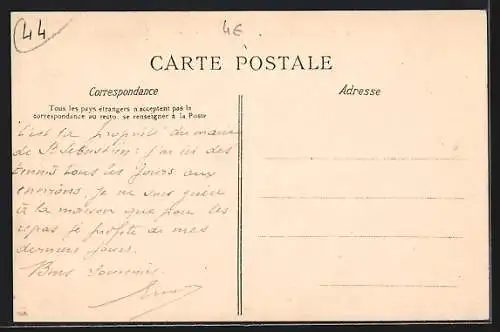 44
4E
CARTE POSTALE
Correspondance
Adresse
Tous les pays étrangers n'acceptent pas la
correspondance au recto, se renseigner à la Poste
C'est la propriété du maire
de St Sébastien: j'ai ici des
tous les jours aux
environs. Je ne suis guère
à la maison que pour les
repas je profite de mes
derniers jours.
Bons souvenirs.